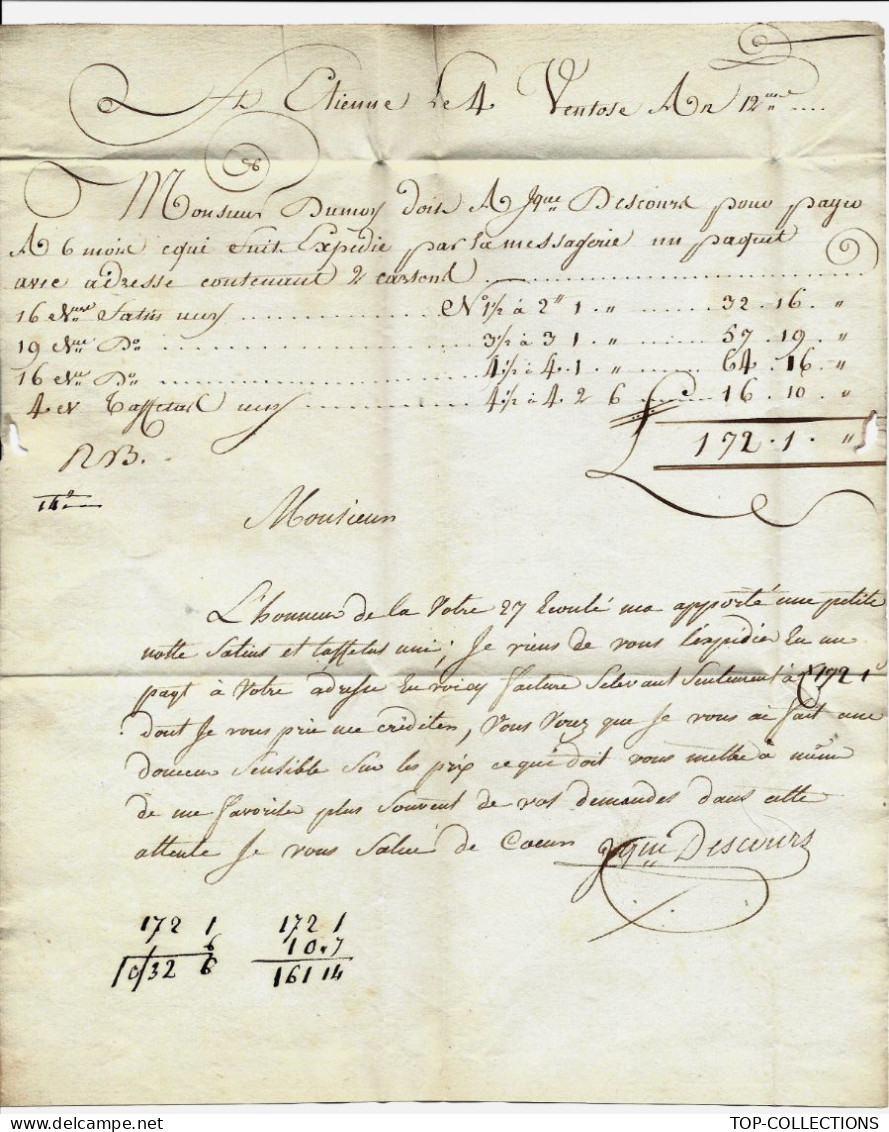 St Etienne Le 4 Ventose An 12me
Monsieur Dumoy doit A Jque Descours pour payer
A 6 mois ce qui Suit Expédie par la messagerie un paquet
avec adresse contenant 2 cartons
16 Satins unis N° 1½ à 2 " 1 " 32 . 16 . "
19 Do 3½ à 3 1 " 57 . 19 . "
16 Do 4½ à 4 . 1 " 64 . 16 . "
4 Taffetas unis 4½ à 4 2 6 16 . 10 . "
£ 172 . 1 . "
Monsieur
L'honneur de la Votre 27 Ecoulé ma apporté une petite
notte Satins et taffetas uni ; Je viens de vous l'expédier En un
paqt à Votre adresse En voicy facture Selevant Seulement à £ 172 1
dont Je vous prie me créditer, Vous Verez que Je vous ai fait une
douceur Sensible Sur les prix ce qui doit vous mettre à même
de me favoriser plus Souvent de vos demandes dans cette
attente Je vous Salue de Coeur Jque Descours
172 1 172 1
6 10 . 7
10/32 6 161 14
TOP-COLLECTIONS